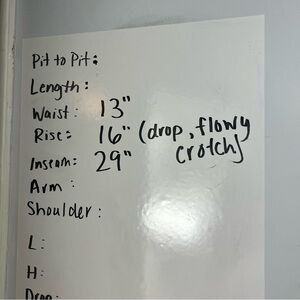 Pit to Pit:
Length:
Waist: 13"
Rise: 16" (drop, flowy
crotch)
Inseam: 29"
Arm:
Shoulder:
L:
H:
Drop: